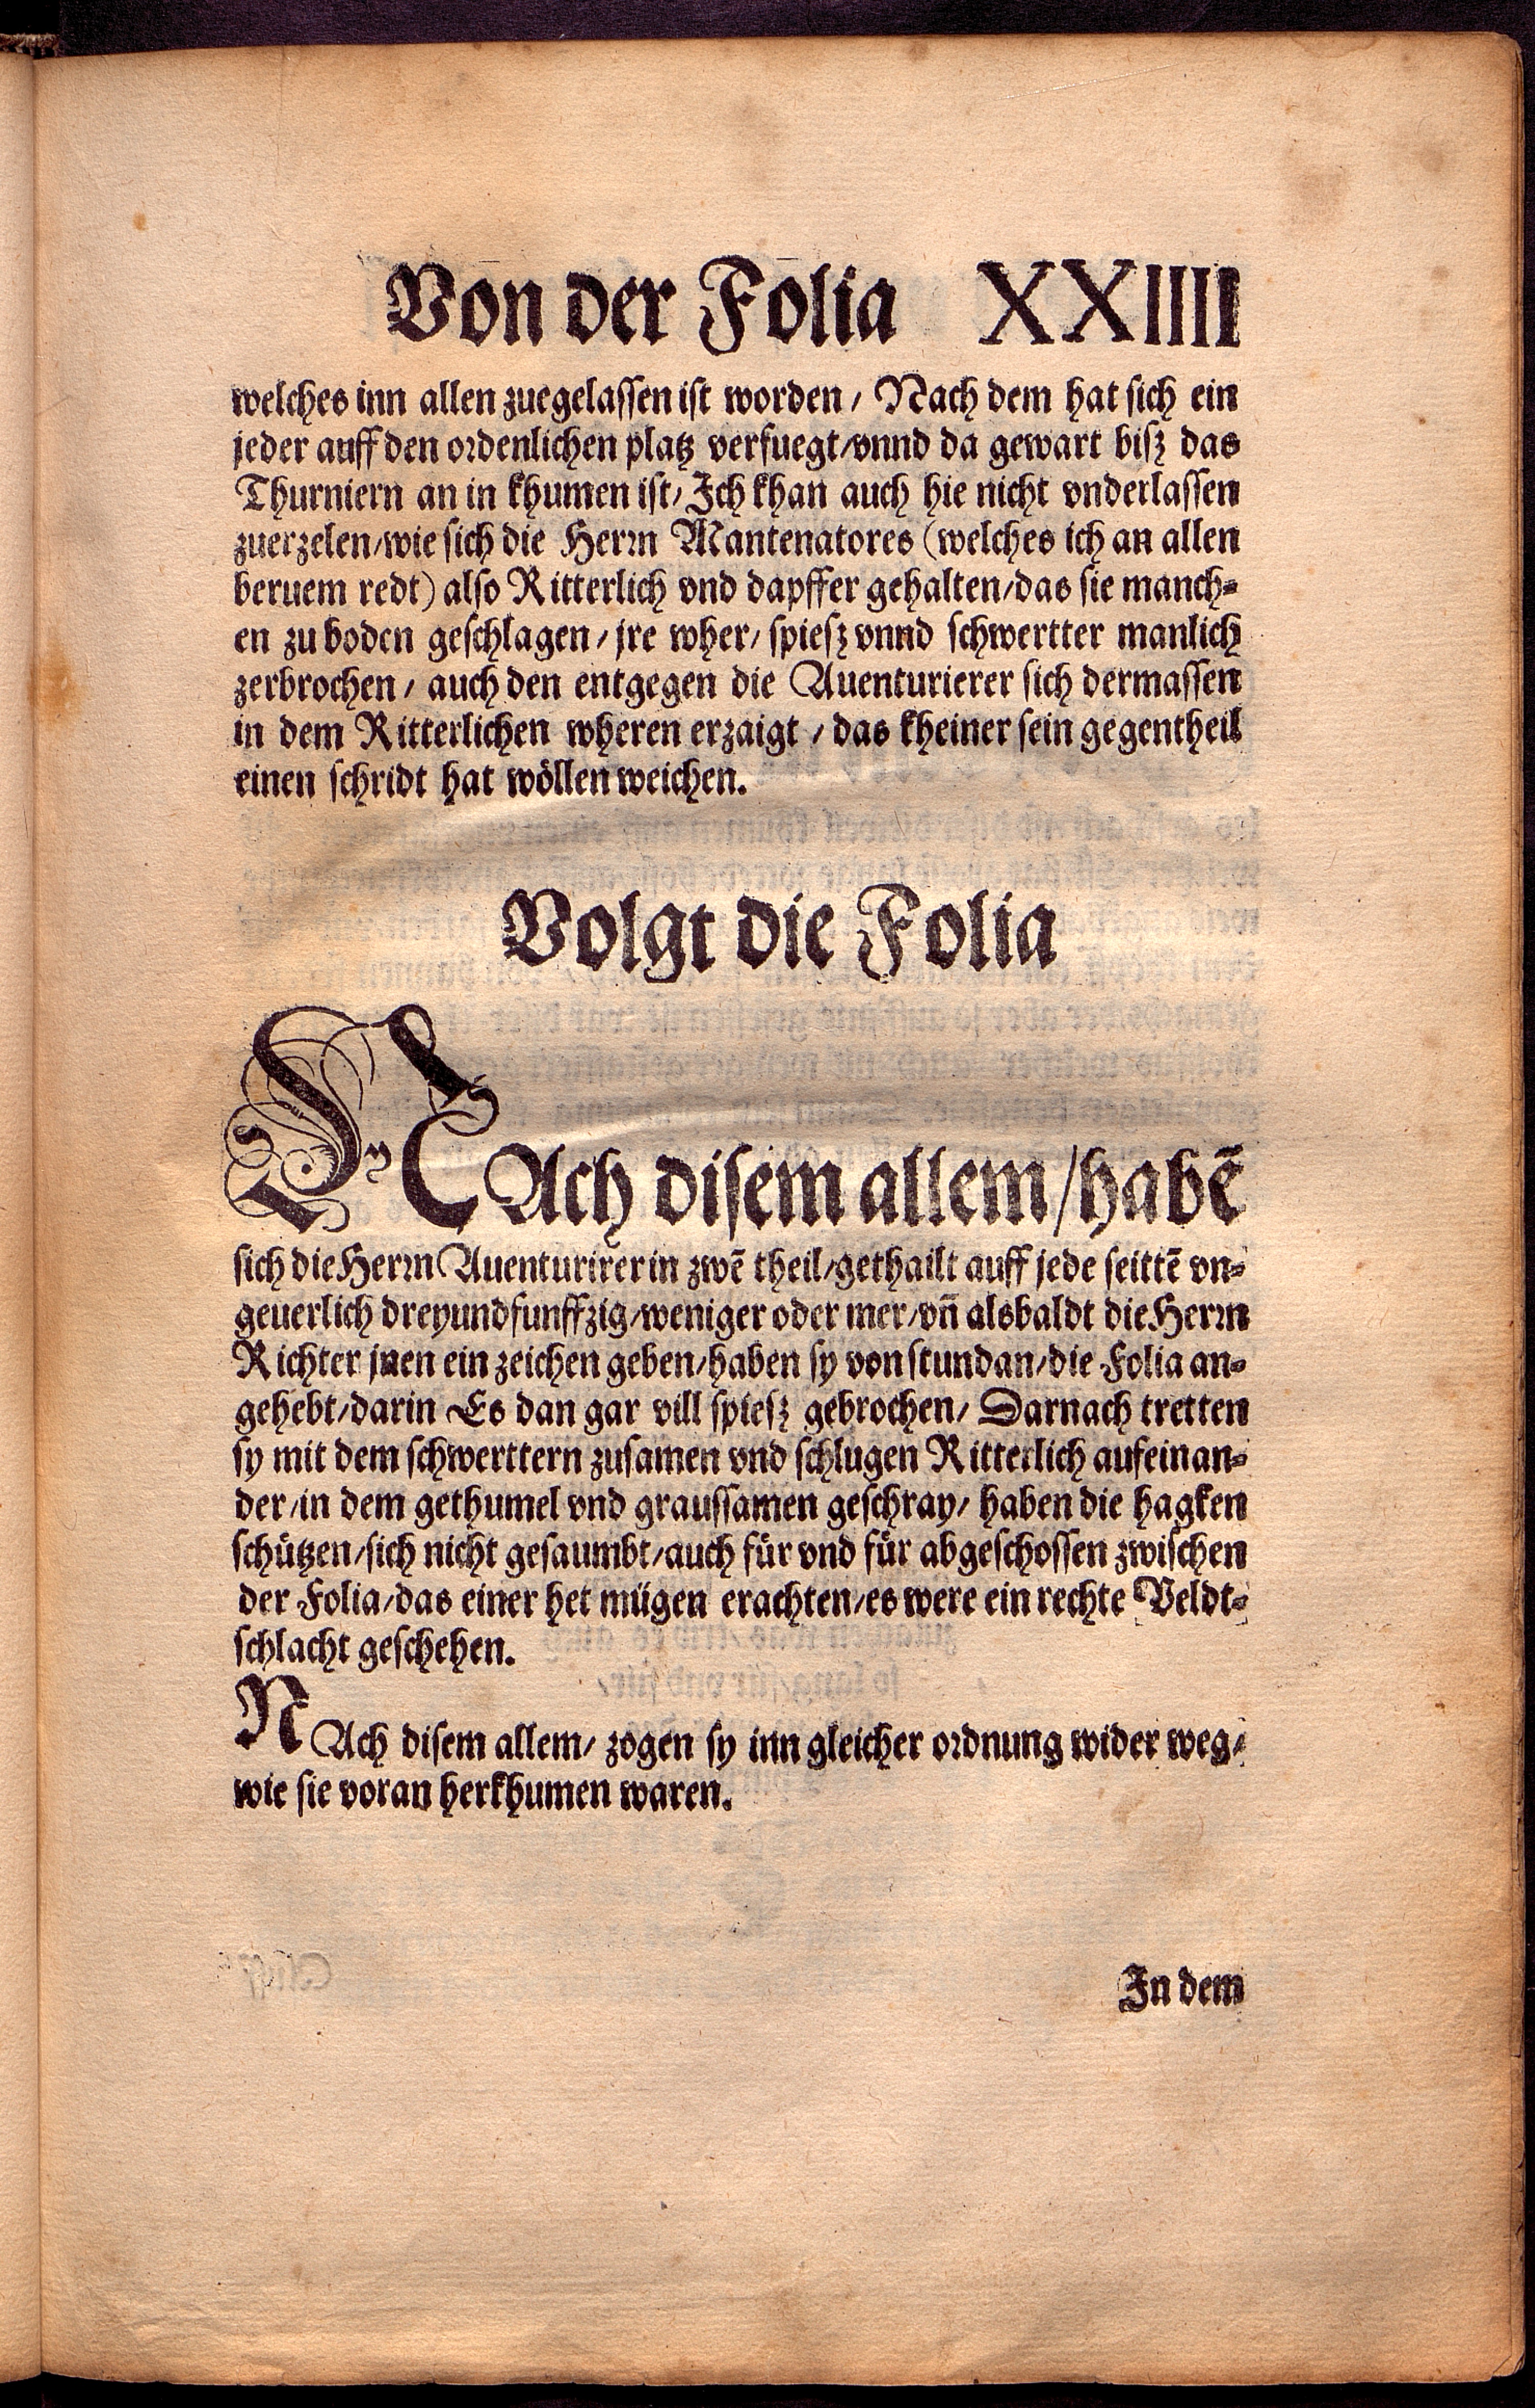 Von der Folia XXIIII
welches inn allen zuegelassen ist worden / Nach dem hat sich ein
jeder auff den ordenlichen platz verfuegt / vnnd da gewart bisz das
Thurniern an in khumen ist / Ich khan auch hie nicht vnderlassen
zuerzelen / wie sich die Herrn Mantenatores (welches ich an allen
beruem redt) also Ritterlich vnd dapffer gehalten / das sie manch=
en zu boden geschlagen / jre wher / spiesz vnnd schwertter manlich
zerbrochen / auch den entgegen die Auenturierer sich dermassen
in dem Ritterlichen wheren erzaigt / das kheiner sein gegentheil
einen schridt hat wöllen weichen.
Volgt die Folia
NAch disem allem / habē
sich die Herrn Auenturirer in zwē theil / gethailt auff jede seittē vn=
geuerlich dreyundfunffzig / weniger oder mer / vn̄ alsbaldt die Herrn
Richter jnen ein zeichen geben / haben sy von stundan / die Folia an=
gehebt / darin Es dan gar vill spiesz gebrochen / Darnach tretten
sy mit dem schwerttern zusamen vnd schlugen Ritterlich aufeinan=
der / in dem gethumel vnd graussamen geschray / haben die hagken
schützen / sich nicht gesaumbt / auch für vnd für abgeschossen zwischen
der Folia / das einer het mügen erachten / es were ein rechte Veldt=
schlacht geschehen.
NAch disem allem / zogen sy inn gleicher ordnung wider weg /
wie sie voran herkhumen waren.
In dem